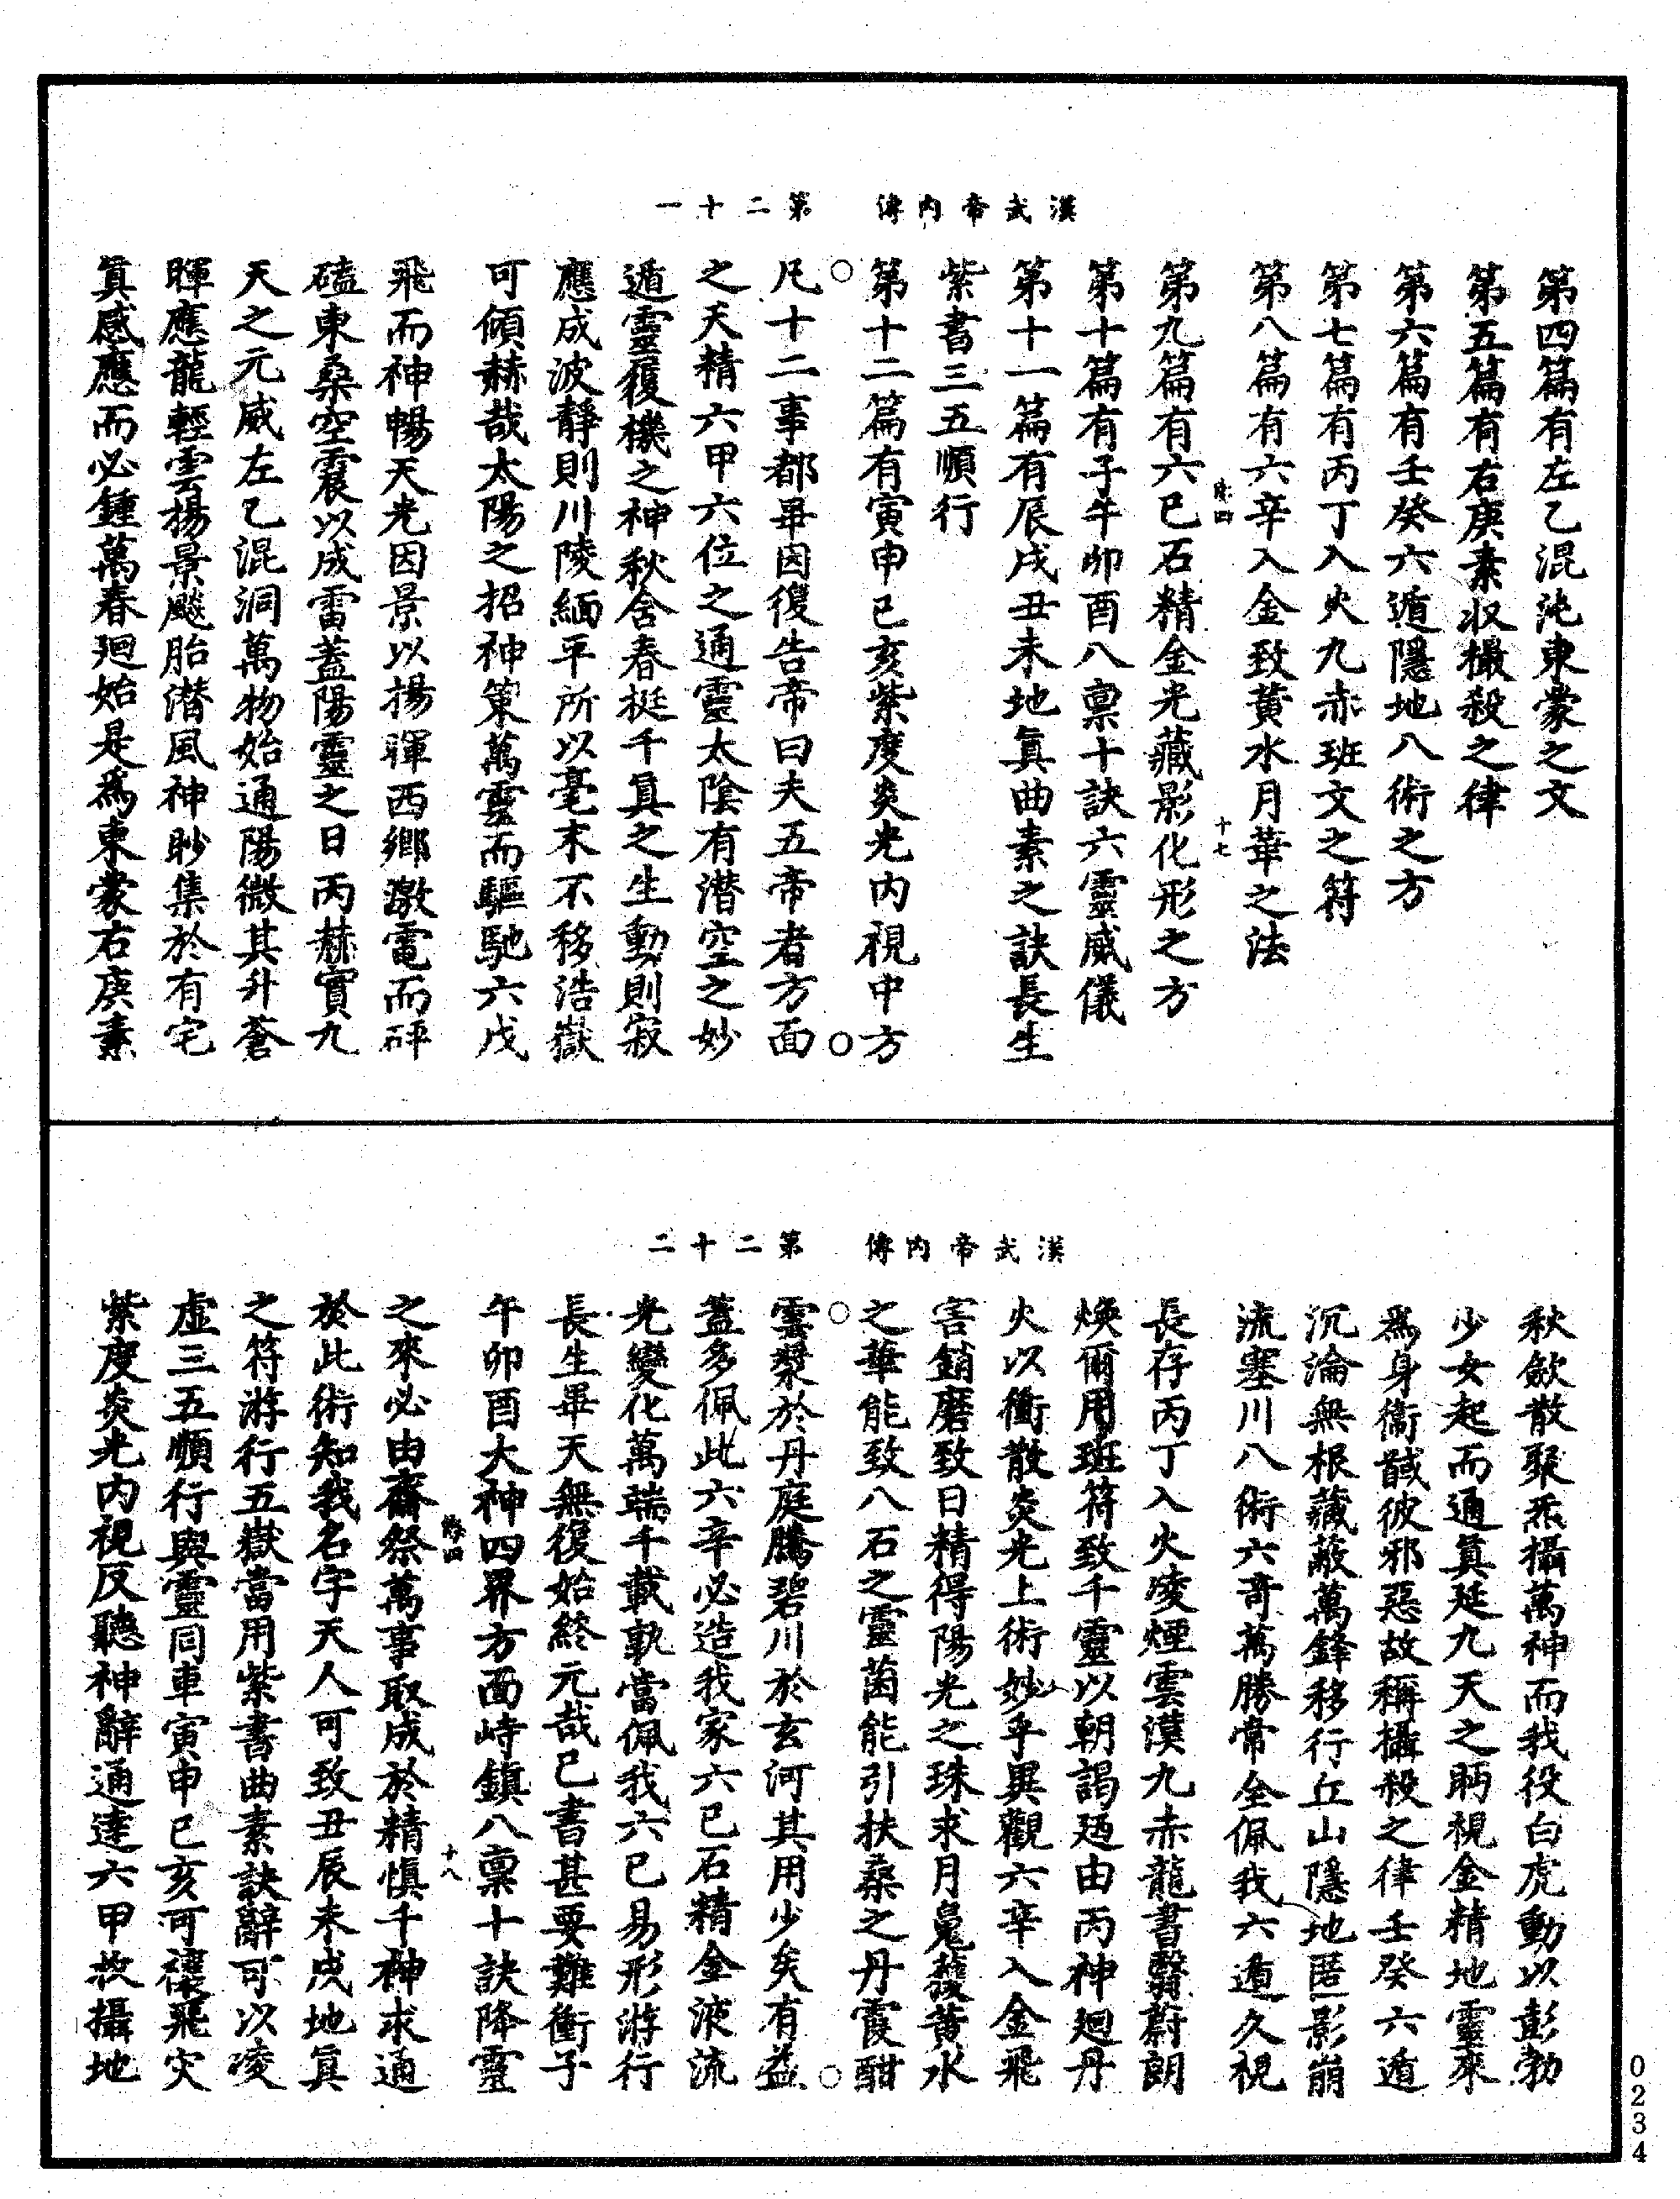 漢武帝內傳　第二十一
第四篇有左乙混沌東蒙之文
第五篇有右庚素収攝殺之律
第六篇有壬癸六遁隱地八術之方
第七篇有丙丁入火九赤班文之符
第八篇有六辛入金致黃水月華之法
第九篇有六巳石精金光藏影化形之方
第十篇有子午卯酉八禀十訣六靈威儀
第十一篇有辰戌丑未地眞曲素之訣長生
紫書三五順行
第十二篇有寅申巳亥紫度炎光內視中方
凡十二事都畢因復告帝曰夫五帝者方面
之天精六甲六位之通靈太陰有潛空之妙
遁靈復機之神秋舍春挺千眞之生動則寂
應成波靜則川陵緬平所以毫末不移浩嶽
可傾赫哉太陽之招神策萬靈而驅馳六戊
飛而神暢天光因景以揚暉西鄉激電而砰
磕東桑空震以成雷蓋陽靈之日丙赫實九
天之元威左乙混洞萬物始通陽微其升蒼
暉應龍輕雲揚景飈胎潛風神眇集於有宅
眞感應而必鍾萬春廻始是爲東蒙右庚素
漢武帝內傳　第二十二
秋斂散聚炁攝萬神而我役白虎動以彭勃
少女起而通眞延九天之眄視金精地靈來
爲身衞馘彼邪惡故稱攝殺之律壬癸六遁
沉淪無根藏蔽萬鋒移行丘山隱地匿影崩
流塞川八術六奇萬勝常全佩我六遁久視
長存丙丁入火凌煙雲漢九赤龍書翳蔚朗
煥爾用班符致千靈以朝謁廼由丙神廻丹
火以衝散炎光上術妙乎異觀六辛入金飛
害銷磨致日精得陽光之珠求月魄獲黃水
之華能致八石之靈菌能引扶桑之丹霞酣
雲漿於丹庭騰碧川於玄河其用少矣有益
蓋多佩此六辛必造我家六巳石精金液流
光變化萬端千載孰當佩我六巳易形游行
長生畢天無復始終元哉巳書甚要難衝子
午卯酉大神四界方面峙鎮八禀十訣降靈
之來必由齋祭萬事取成於精愼千神求通
於此術知我名字天人可致丑辰未戌地眞
之符游行五嶽當用紫書曲素訣辭可以凌
虛三五順行與靈同車寅申巳亥可禳飛灾
紫度炎光內視反聽神辭通達六甲攻攝地
0234